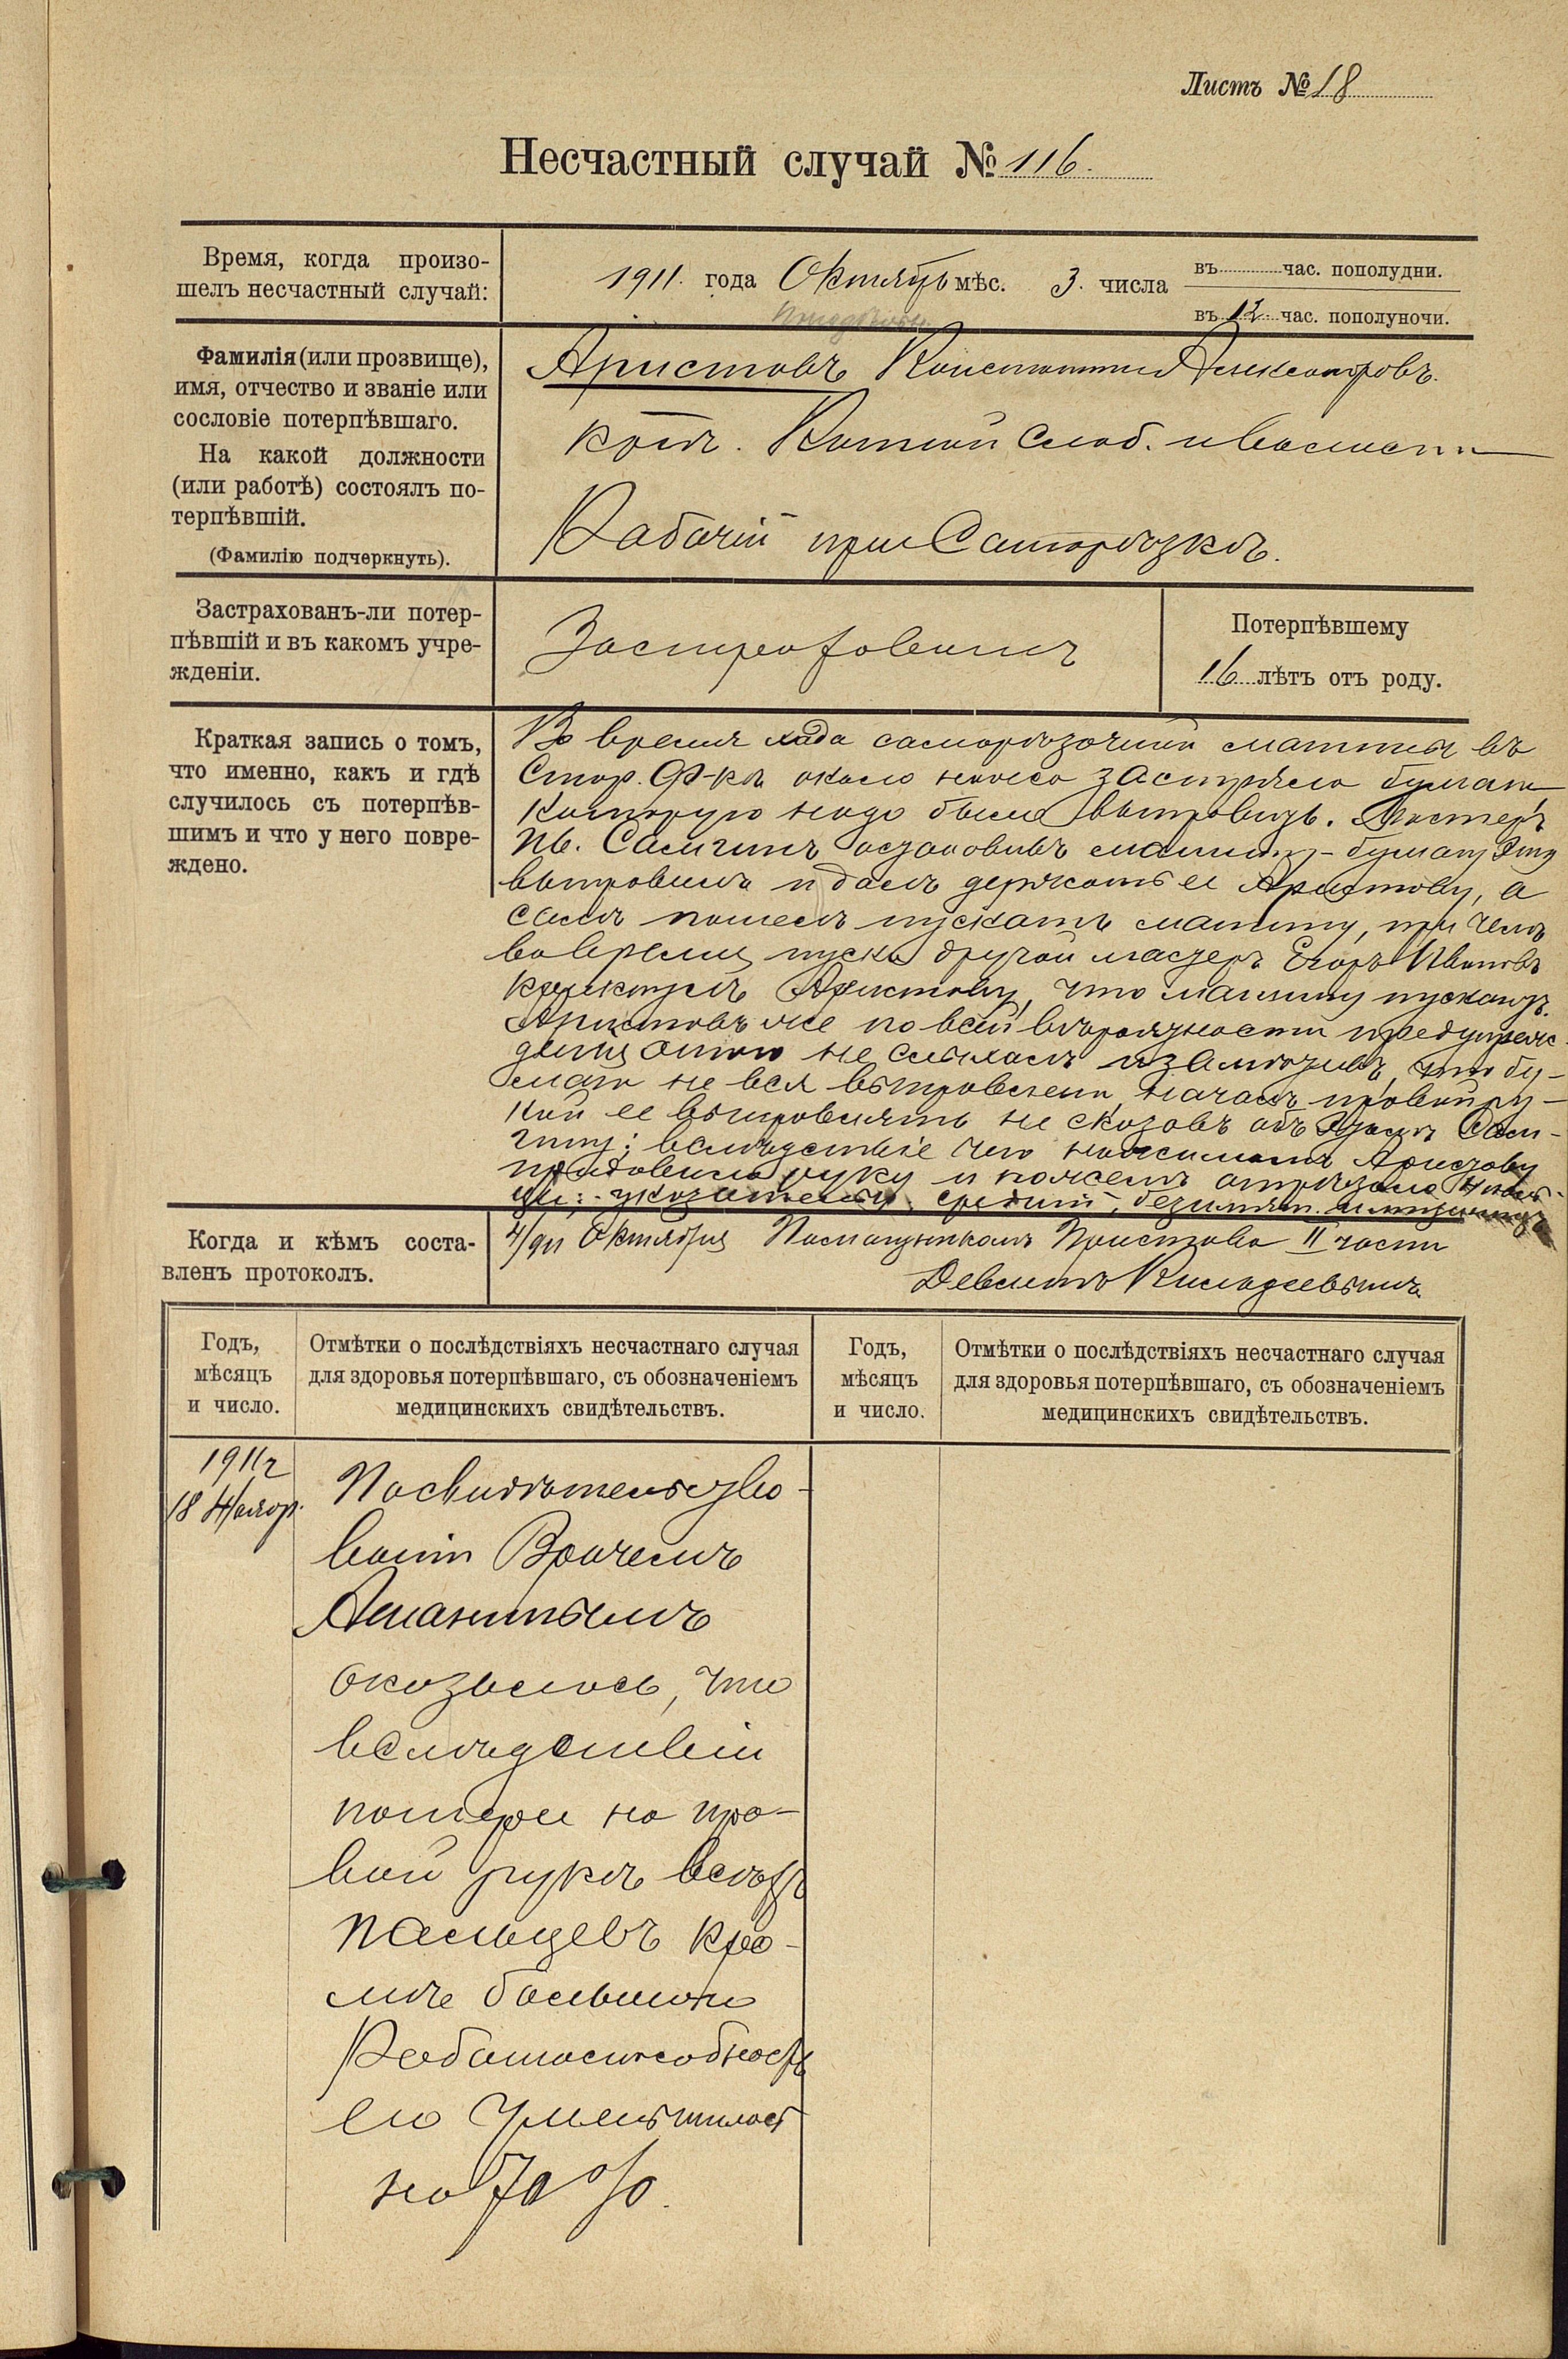 Листъ № 18
Несчастный случай № 116.
Время, когда произо-
шелъ несчастный случай:
1911. года Октябрь мѣс. 3. числа
въ час. пополудни.
въ 12 час. пополуночи.
Фамилія (или прозвище),
имя, отчество и званіе или
сословіе потерпѣвшаго.
На какой должности
(или работѣ) состоялъ по-
терпѣвшій.
(Фамилію подчеркнуть).
Аристовъ Константинъ Александровъ.
крест. Слоб. и волости
Рабочій при Саморѣзкѣ.
Застрахованъ-ли потер-
пѣвшій и въ какомъ учре-
жденіи.
Застрахованъ
Потерпѣвшему
16 лѣтъ отъ роду.
Краткая запись о томъ,
что именно, какъ и гдѣ
случилось съ потерпѣв-
шимъ и что у него повре-
ждено.
Во время хода саморѣзочной машины въ
Стор. Ф-кѣ около ножа застряла бумага,
которую надо было выправить. Мастеръ
Ив. Самгинъ остановивъ машину - бумагу эту
выправилъ и далъ держать ее Аристову, а
самъ пошелъ пускать машину, при чемъ
во время пуска другой мастеръ Егоръ Ивановъ
крикнулъ Аристову, что машину пускаютъ.
Аристовъ же по всей вѣроятности предупреж-
денія этого не слыхалъ и замѣтивъ, что бу-
мага не вся выправлена, началъ правой ру-
кой ее выправлять не сказавъ объ этомъ Сам-
гину; вслѣдствіе чего Аристову
придавило руку и ножемъ отрѣзало 4 паль-
ца: указательн. средній, безымян. и мизинецъ
Когда и кѣмъ соста-
вленъ протоколъ.
4/911 Октября Помощникомъ Пристава II части
Девлетъ Кильдеевымъ
Годъ,
мѣсяцъ
и число.
Отмѣтки о послѣдствіяхъ несчастнаго случая
для здоровья потерпѣвшаго, съ обозначеніемъ
медицинскихъ свидѣтельствъ.
Годъ,
мѣсяцъ
и число.
Отмѣтки о послѣдствіяхъ несчастнаго случая
для здоровья потерпѣвшаго, съ обозначеніемъ
медицинскихъ свидѣтельствъ.
1911 г
18 Ноябр.
По свидѣтельство-
ваніи Врачемъ
оказалось, что
вслѣдствіи
потери на пра-
вой рукѣ всѣхъ
пальцевъ кро-
мѣ большого
Работоспособность
его уменьшилась
на 70%.